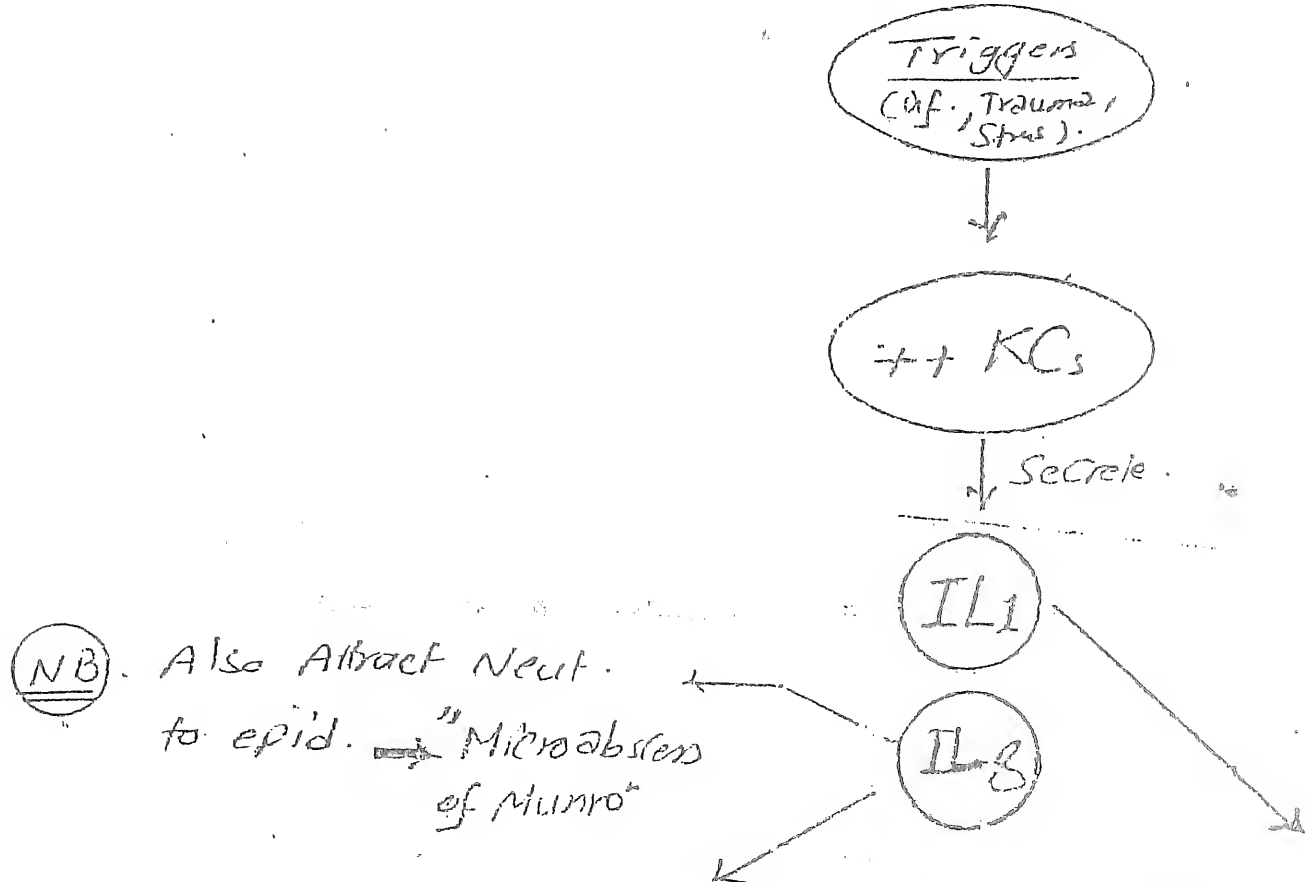 Triggers
(inf., Trauma,
Stress).
++ KCs
Secrete.
IL1
NB. Also Attract Neut.
to epid. → "Microabscess
of Munro"
IL8